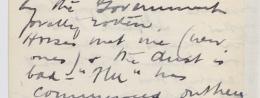 by the Government
pretty rotten.
Horses met me (new
ones) & the dust is
bad - "Nu" has
commenced